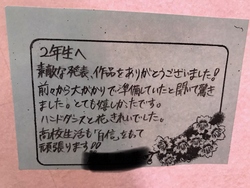 2年生へ
素敵な発表、作品をありがとうございました!!
前々から大がかりで準備していたと聞いて驚き
ました。とても嬉しかったです。
ハンドダンスと花、きれいでした。
高校生活も「自信」をもって
頑張ります!!